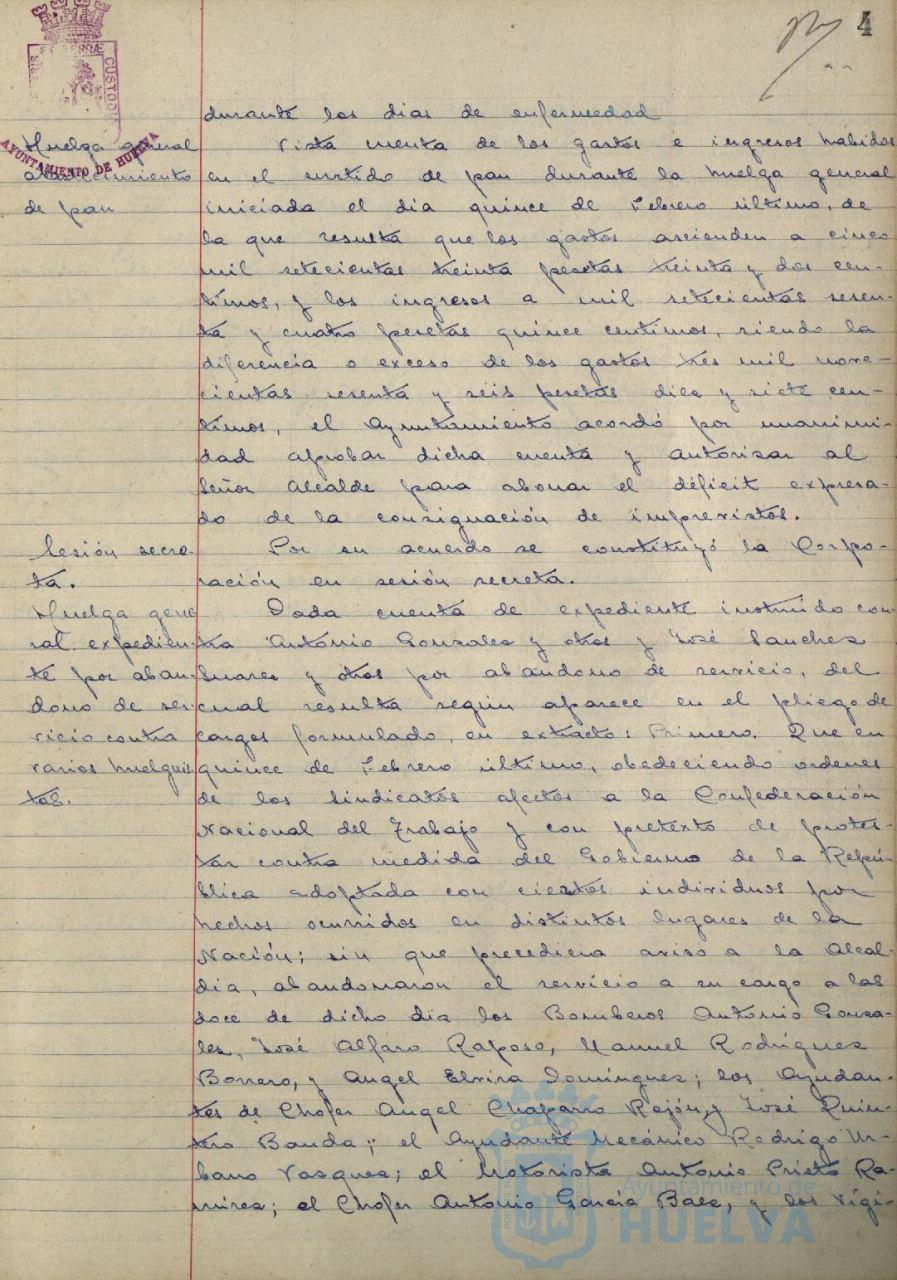 4
PORTUS MARIS ET TERRÆ CUSTODIA
AYUNTAMIENTO DE HUELVA
durante los dias de enfermedad
Huelga general
abastecimiento
de pan
Vista cuenta de los gastos e ingresos habidos
en el surtido de pan durante la huelga general
iniciada el dia quince de Febrero último, de
la que resulta que los gastos ascienden a cinco
mil setecientas treinta pesetas treinta y dos cen-
timos, y los ingresos a mil setecientas sesen-
ta y cuatro pesetas quince centimos, siendo la
diferencia o exceso de los gastos tres mil nove-
cientas sesenta y seis pesetas diez y siete cen-
timos, el Ayuntamiento acordó por unanimi-
dad aprobar dicha cuenta y autorizar al
Señor Alcalde para abonar el déficit expresa-
do de la consignación de imprevistos.
Sesión secre-
ta.
Por su acuerdo se constituyó la Corpo-
ración en sesión secreta.
Huelga gene
ral: expedien-
te por aban-
dono de ser-
vicio contra
varios huelguis
tas.
Dada cuenta de expediente instruido con-
tra Antonio Gonzalez y otros y José Sanchez
Suarez y otros por abandono de servicio, del
cual resulta según aparece en el pliego de
cargos formulado, en extracto: Primero. Que en
quince de Febrero último, obedeciendo ordenes
de los Sindicatos afectos a la Confederación
Nacional del Trabajo y con pretexto de protes-
tar contra medida del Gobierno de la Repú-
blica adoptada con ciertos individuos por
hechos ocurridos en distintos lugares de la
Nación; sin que precediera aviso a la Alcal-
dia, abandonaron el servicio a su cargo a las
doce de dicho dia los Bomberos Antonio Gonza-
les, José Alfaro Raposo, Manuel Rodríguez
Borrero, y Angel Elvira Domínguez; los Ayudan-
tes de Chofer Angel Chaparro Rejón, y José Quin-
tero Banda; el Ayudante Mecánico Rodrigo Ur-
bano Vasquez; el Motorista Antonio Prieto Ra-
mirez; el Chofer Antonio García Baez, y los Vigi-
Ayuntamiento de
HUELVA